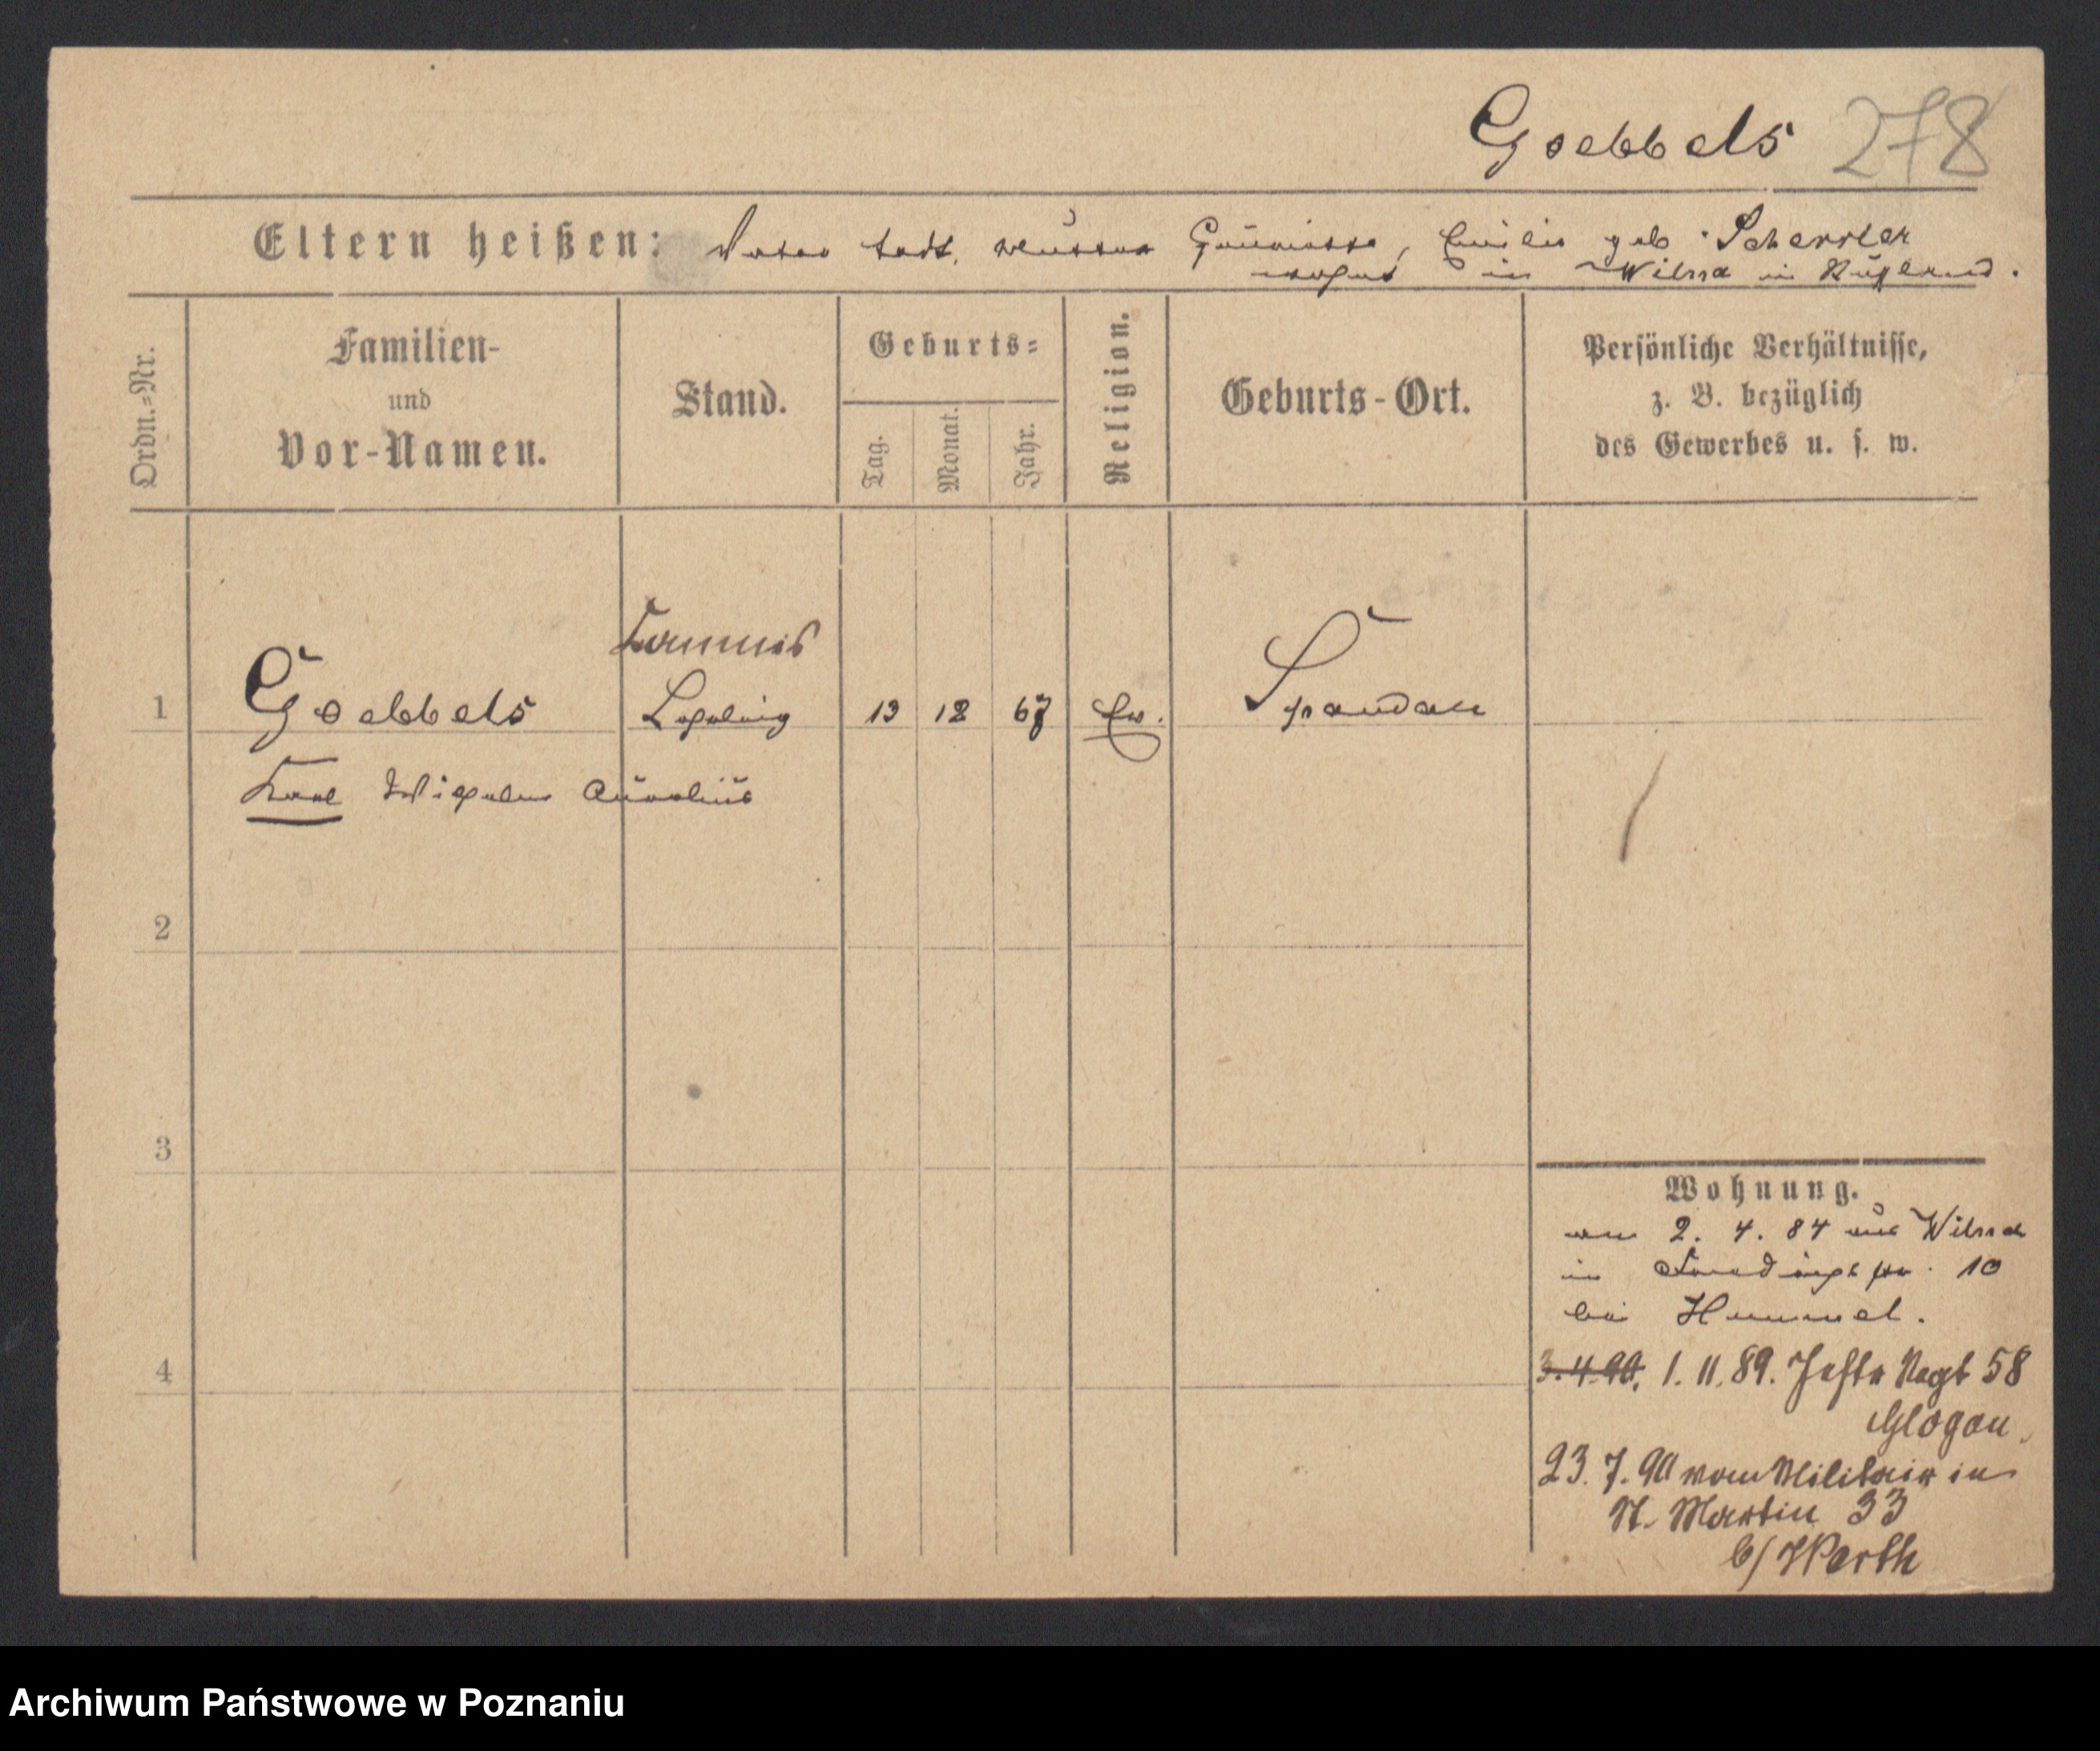 Goebbels 278
Eltern heißen: Vater todt, Mutter Henriette, Emilie geb. Scherrler
wohnt in Wilna in Rußland.
Ordn.-Nr.
Familien-
und
Vor-Namen.
Stand.
Geburts-
Tag.
Monat.
Jahr.
Religion.
Geburts-Ort.
Persönliche Verhältnisse,
z. B. bezüglich
des Gewerbes u. s. w.
Commis
1 Goebbels Lehrling 13 12 67 Ev. Spandau
Karl Wilhelm Aurelius
2
3
4
Wohnung.
am 2. 4. 84 aus Wilna
in 10
bei Hummel.
3.4.90. 1. 11. 89. Inftr Regt 58
Glogau.
23. 7. 90 vom Militair in
St. Martin 33
b/ Werth
Archiwum Państwowe w Poznaniu